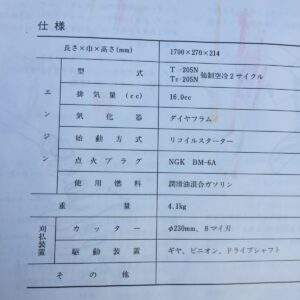 仕様
長さ×巾×高さ(mm) 1700×270×214
エンジン
型式 T -205N 強制空冷2サイクル
Tc-205N
排気量(cc) 16.0cc
気化器 ダイヤフラム
始動方式 リコイルスターター
点火プラグ NGK BM-6A
使用燃料 潤滑油混合ガソリン
重量 4.1kg
刈払装置
カッター φ230mm、8マイ刃
駆動装置 ギヤ、ピニオン、ドライブシャフト
その他